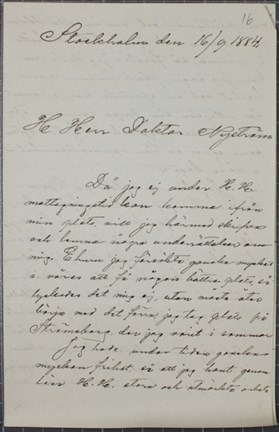 16
Stockholm den 16/9 1884.
H Herr Doktor Nyström
Då jag ej under H. H.
mottagningstid kan komma ifrån
min plats, vill jag härmed skrifva
och lemna några underrättelser om
mig. Ehuru jag försökte ganska mycket
i våras att få någon bättre plats, så
lyckades det mig ej, utan måste åter
börja med det förra jag tog plats på
Strömsborg, der jag varit i sommar
Jag hade, under tiden ganska
mycken frihet, så att jag hant genom
läsa H. H. stora och utmärkta arbete